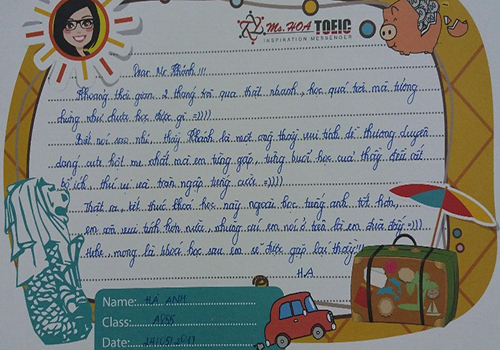 Ms. HOA TOEIC
INSPIRATION MESSENGER
Dear Mr. Khánh !!!
Khoảng thời gian 2 tháng trôi qua thật nhanh, học quá trời mà tưởng
chừng như chưa học được gì =))))
Bật nói sao nhỉ, thầy Khánh là một ông thầy vui tính dễ thương duyên
dáng cute hột me nhất mà em từng gặp, từng buổi học của thầy đều rất
bổ ích, thú vị và tràn ngập tiếng cười. =))))
Thật ra, kết thúc khoá học này ngoài học tiếng anh tốt hơn,
em còn vui tính hơn nữa, nhưng cái em nói ở trên là em đùa đấy =)))
Hehe, mong là khoá học sau em sẽ được gặp lại thầy!!!
H.A
Name: HÀ ANH
Class:
Date: